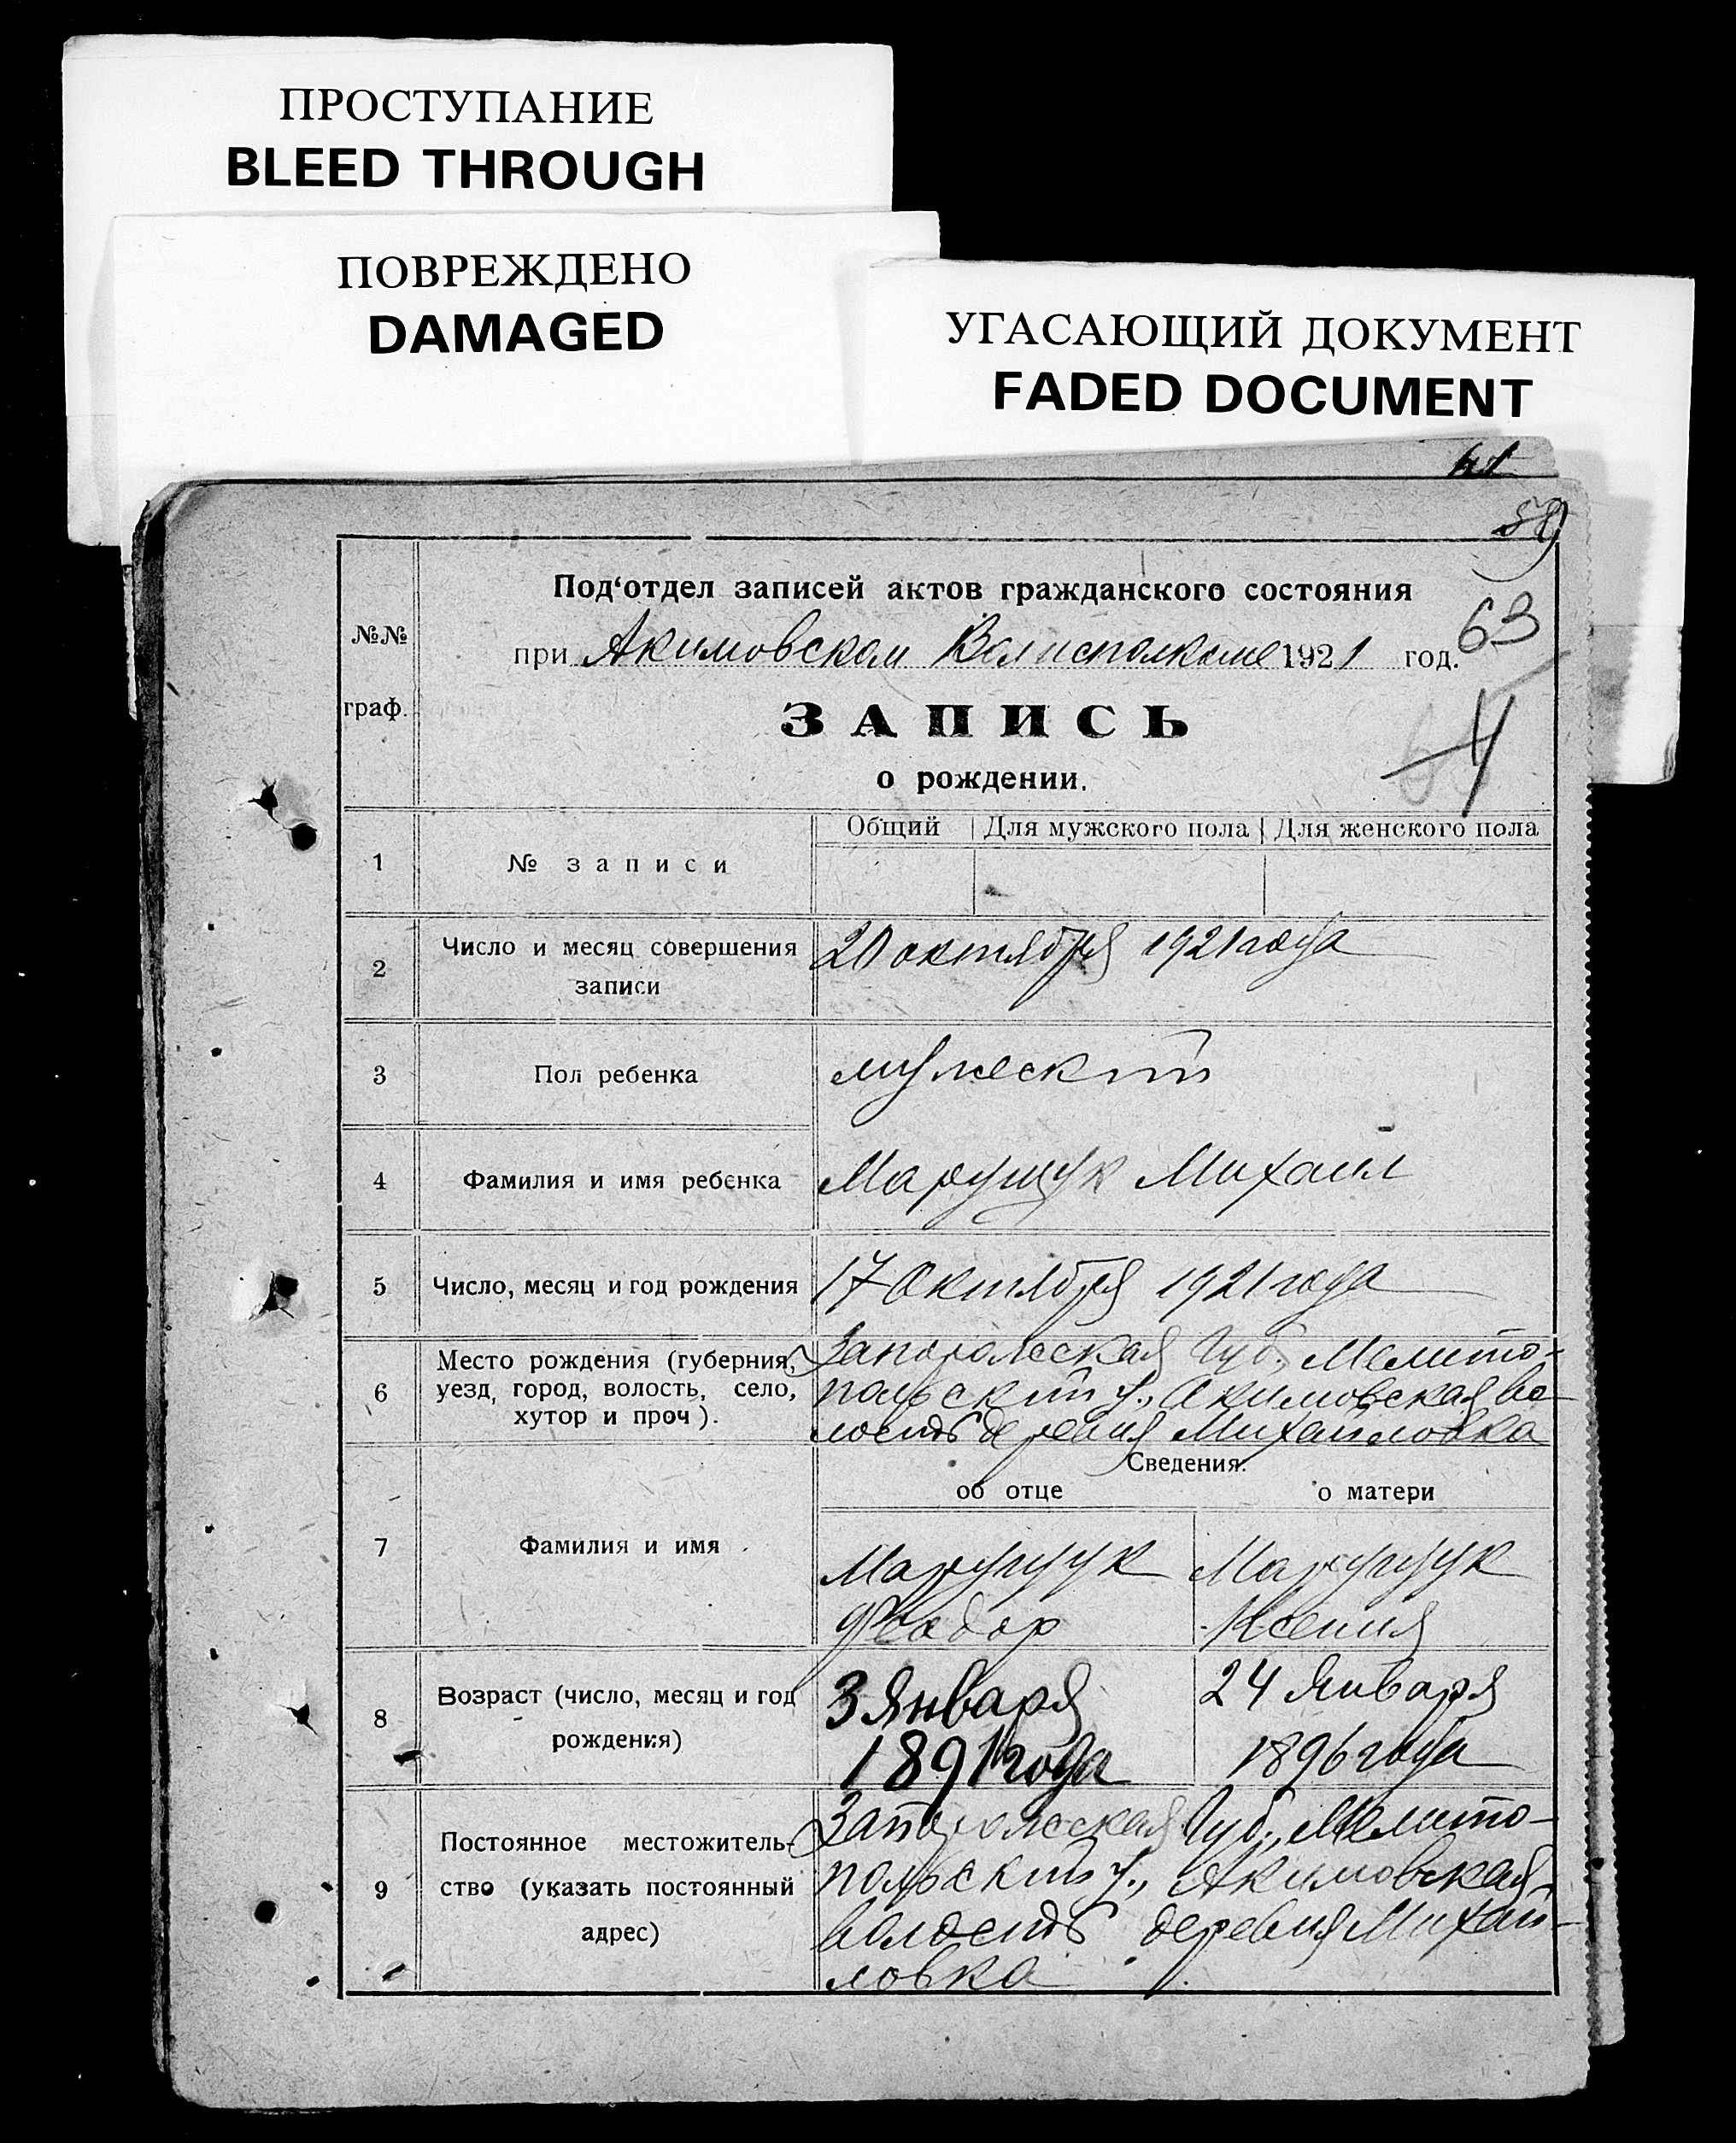 ПРОСТУПАНИЕ
BLEED THROUGH
ПОВРЕЖДЕНО
DAMAGED
УГАСАЮЩИЙ ДОКУМЕНТ
FADED DOCUMENT
59
№№
граф.
Под‘отдел записей актов гражданского состояния
при Акимовском Волисполкоме 1921 год.
63
ЗАПИСЬ
о рождении.
4
1 № записи Общий Для мужского пола Для женского пола
2 Число и месяц совершения
записи
20 октября 1921 года
3 Пол ребенка мужский
4 Фамилия и имя ребенка Марущук Михаил
5 Число, месяц и год рождения 17 октября 1921 года
6 Место рождения (губерния,
уезд, город, волость, село,
хутор и проч).
Запорожская Губ., Мелито-
польский у., Акимовская во-
лость деревня Михайловка
Сведения:
об отце о матери
7 Фамилия и имя
Марущук Марущук
Феодор Ксения
8 Возраст (число, месяц и год
рождения)
3 Января 24 Января
1891 года 1896 года
9 Постоянное местожитель-
ство (указать постоянный
адрес)
Запорожская Губ., Мелито-
польский у., Акимовская
волость деревня Михай-
ловка